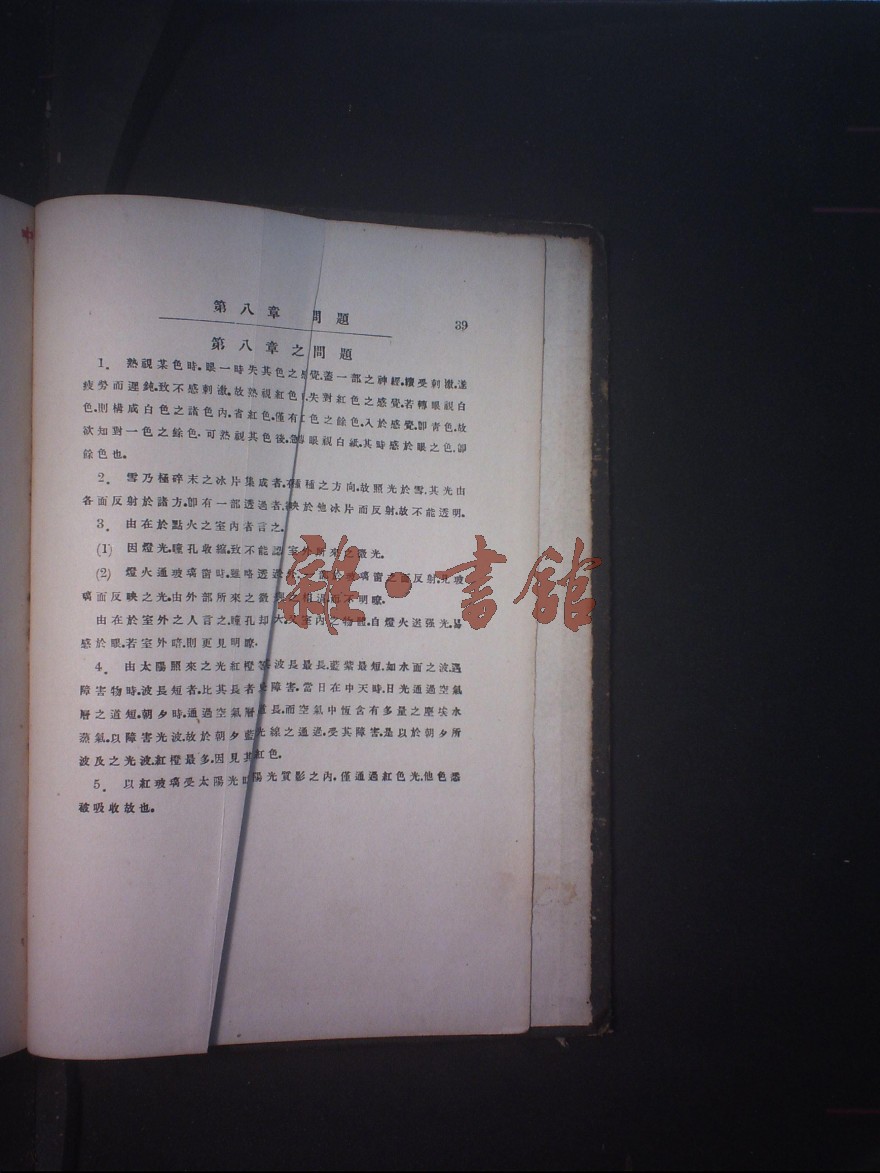 第八章 問題 39
第八章之問題
1. 熟視某色時,眼一時失其色之感覺,蓋一部之神經,續受刺激,遂
疲勞而遲鈍,致不感刺激,故熟視紅色 失對紅色之感覺,若轉眼視白
色,則構成白色之諸色內,省紅色,僅有 色之餘色,入於感覺,卽青色,故
欲知對一色之餘色,可熟視其色後,急轉眼視白紙,其時感於眼之色,卽
餘色也。
2. 雪乃極碎末之冰片集成者,有種種之方向,故照光於雪,其光由
各面反射於諸方,卽有一部透過者, 映於他冰片而反射,故不能透明。
3. 由在於點火之室內者言之。
(1) 因燈光,瞳孔收縮,致不能認室外所來之微光。
(2) 燈火通玻璃窗時,雖略透過 於玻璃窗之面反射,此玻
璃面反映之光,由外部所來之微 之相 不明瞭。
由在於室外之人言之,瞳孔却大,又室內之物體,自燈火送强光,易
感於眼,若室外暗,則更見明瞭。
4. 由太陽照來之光紅橙等波長最長,藍紫最短,如水面之波,遇
障害物時,波長短者,比其長者 障害,當日在中天時,日光通過空氣
層之道短,朝夕時,通過空氣層 長,而空氣中恆含有多量之塵埃水
蒸氣,以障害光波,故於朝夕藍光線之通過,受其障害,是以於朝夕所
波及之光波,紅橙最多,因見其紅色。
5. 以紅玻璃受太陽光 陽光質影之內,僅通過紅色光,他色悉
被吸收故也。
雜·書館